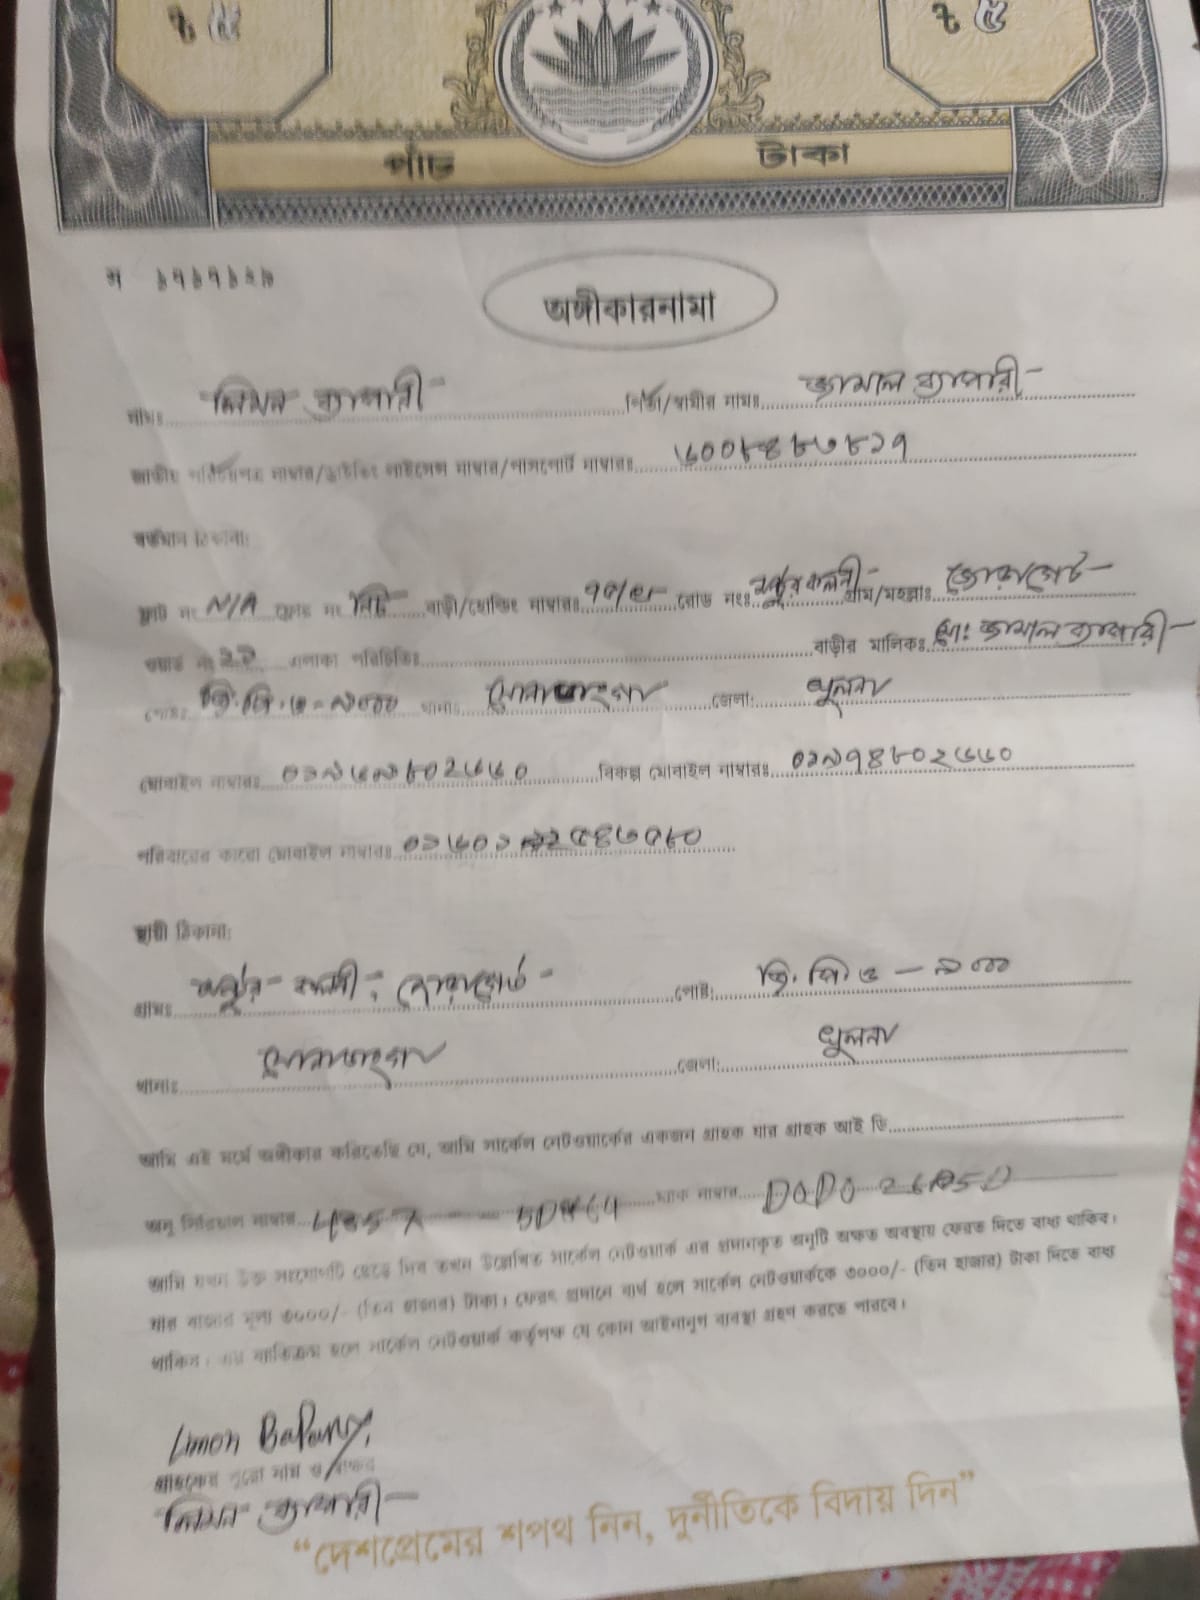 ৳ ৫ ৳ ৫
পাঁচ টাকা
অঙ্গীকারনামা
নামঃ লিমন ব্যাপারী পিতা/স্বামীর নামঃ জামাল ব্যাপারী
জাতীয় পরিচিপত্র নাম্বার/ড্রাইভিং লাইসেন্স নাম্বার/পাসপোর্ট নাম্বারঃ
বর্তমান ঠিকানা:
ফ্লাট নং N/A ফ্লোর নং নিচ বাড়ী/হোল্ডিং নাম্বারঃ রোড নংঃ গ্রাম/মহল্লাঃ জোড়াগেট
ওয়ার্ড নং ২১ এলাকা পরিচিতিঃ বাড়ীর মালিকঃ মো: জামাল ব্যাপারী
পোষ্টঃ জি.পি.ও - ৯০০০ থানাঃ সোনাডাংগা জেলা: খুলনা
মোবাইল নাম্বারঃ বিকল্প মোবাইল নাম্বারঃ ০১৯৭৪৮০২৬৬০
পরিবারের কারো মোবাইল নাম্বারঃ
স্থায়ী ঠিকানা:
গ্রামঃ জোড়াগেট পোষ্ট: জি.পি.ও - ৯০০০
থানাঃ সোনাডাংগা জেলা: খুলনা
আমি এই মর্মে অঙ্গীকার করিতেছি যে, আমি সার্কেল নেটওয়ার্কের একজন গ্রাহক যার গ্রাহক আই ডি
অনু সিরিয়াল নাম্বার ম্যাক নাম্বার
আমি যখন উক্ত সংযোগটি ছেড়ে দিব তখন উল্লেখিত সার্কেল নেটওয়ার্ক এর প্রদানকৃত অনুটি অক্ষত অবস্থায় ফেরত দিতে বাধ্য থাকিব।
যার বাজার মূল্য ৩০০০/- (তিন হাজার) টাকা। ফেরৎ প্রদানে ব্যর্থ হলে সার্কেল নেটওয়ার্ককে ৩০০০/- (তিন হাজার) টাকা দিতে বাধ্য
থাকিব। এর ব্যতিক্রম হলে সার্কেল নেটওয়ার্ক কর্তৃপক্ষ যে কোন আইনানুগ ব্যবস্থা গ্রহণ করতে পারবে।
Limon BaPary,
গ্রাহকের পুরো নাম ও স্বাক্ষর
লিমন ব্যাপারী
“দেশপ্রেমের শপথ নিন, দুর্নীতিকে বিদায় দিন”